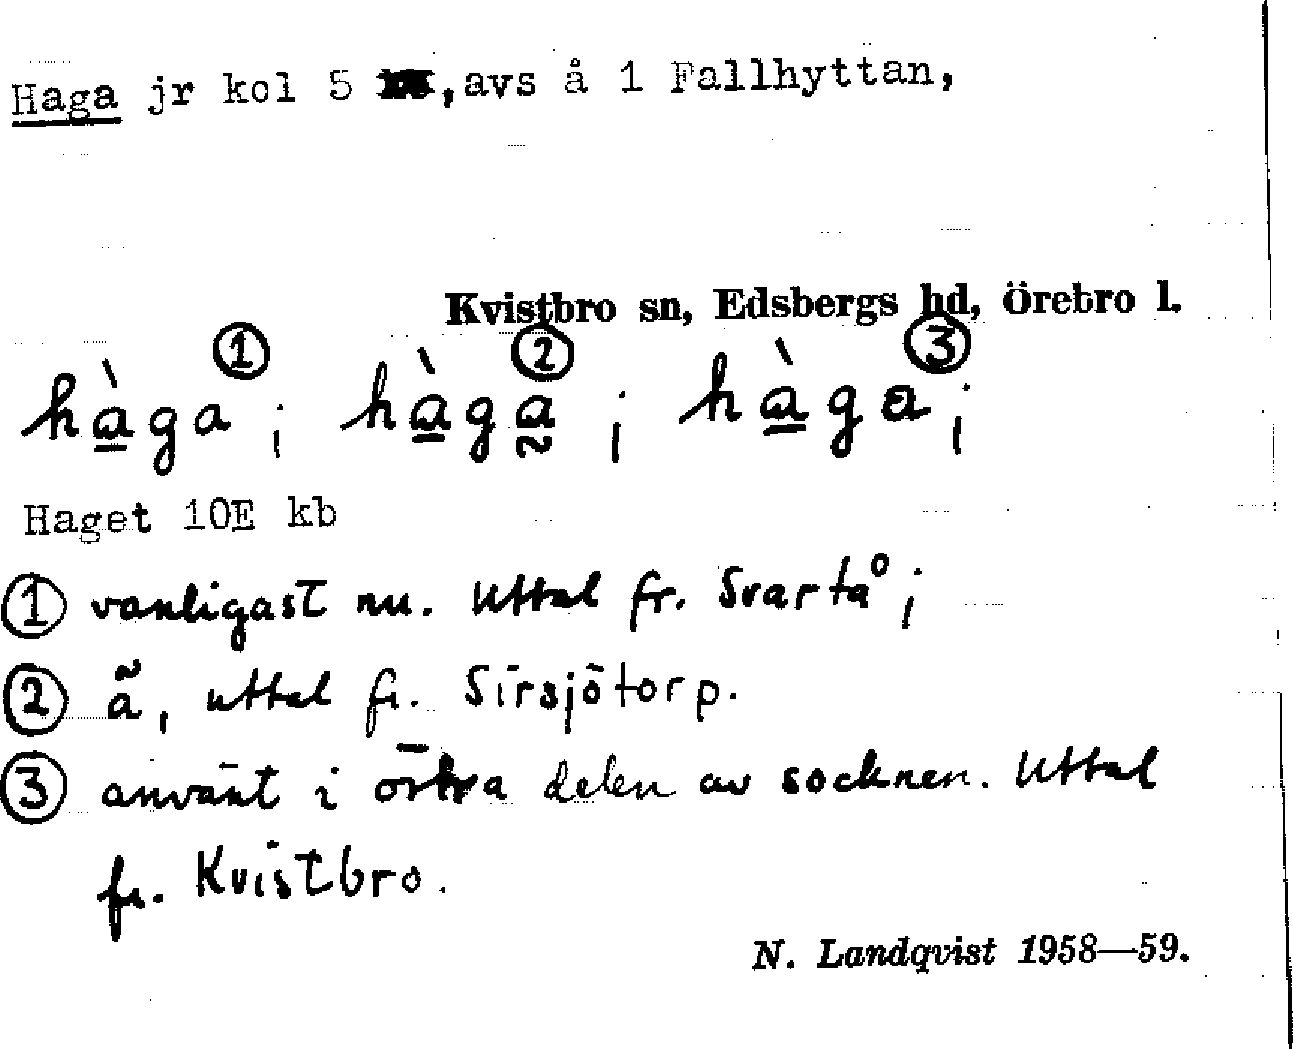 Haga jr kol 5 , avs å 1 Fallhyttan,
Kvistbro sn, Edsbergs hd, Örebro l.
hàga ①; hàga ②; hàga ③;
Haget 10E kb
① vanligast nu. Uttal fr. Svartå;
② ã, uttal fr. Sirsjötorp.
③ använt i östra delen av socknen. Uttal
fr. Kvistbro.
N. Landqvist 1958—59.